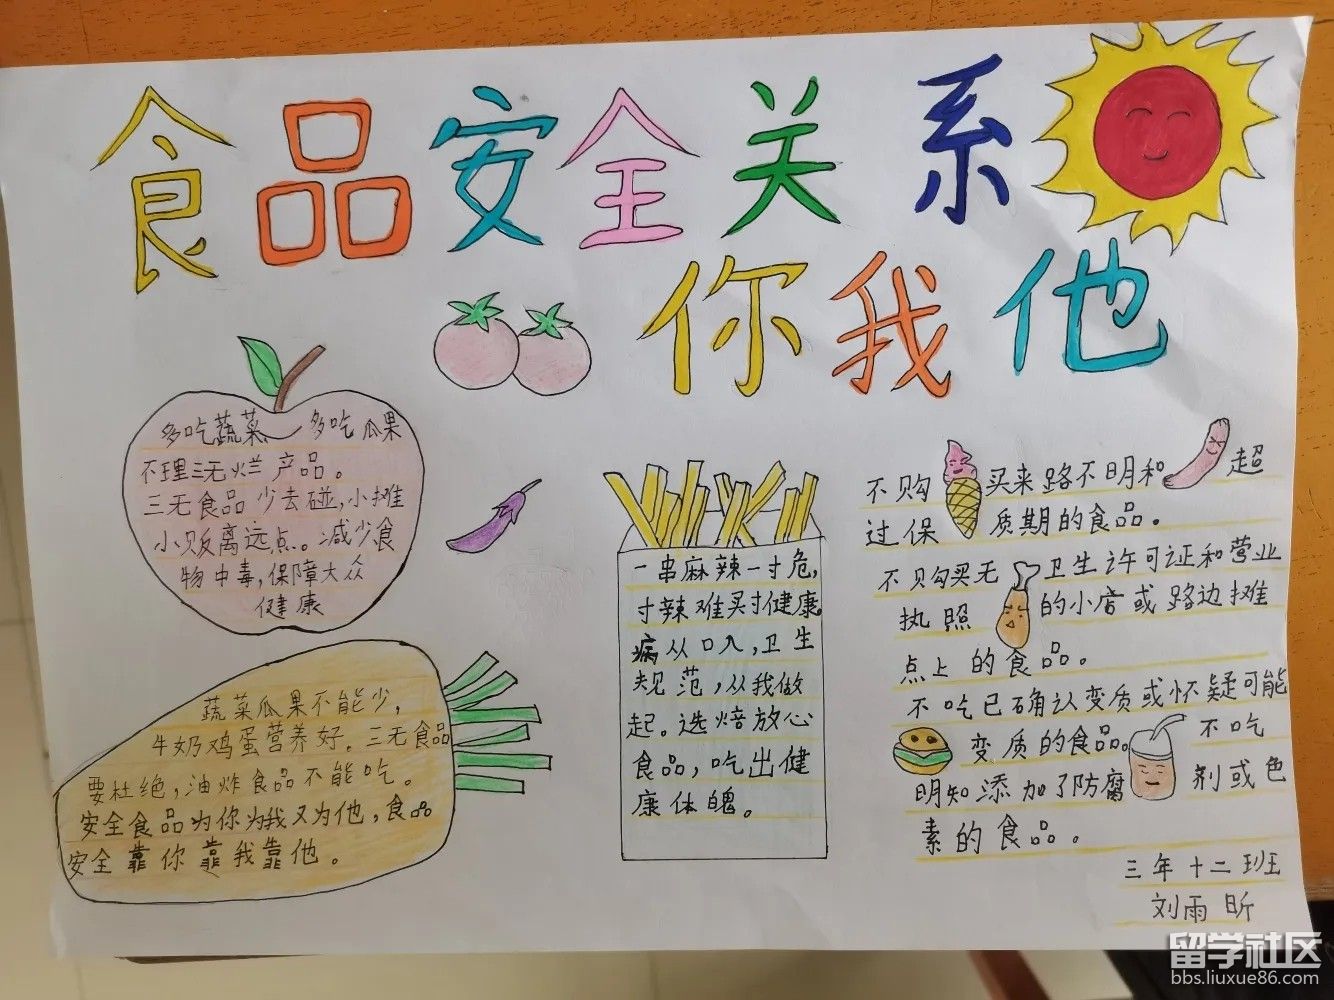 食品安全关系
你我他
多吃蔬菜 多吃瓜果
不理三无烂产品。
三无食品少去碰,小摊
小贩离远点。减少食
物中毒,保障大众
健康
蔬菜瓜果不能少,
牛奶鸡蛋营养好。三无食品
要杜绝,油炸食品不能吃。
安全食品为你为我又为他,食品
安全靠你靠我靠他。
一串麻辣一寸危,
寸辣难买寸健康
病从口入,卫生
规范,从我做
起。选焙放心
食品,吃出健
康体魄。
不购买来路不明和超
过保质期的食品。
不购买无卫生许可证和营业
执照的小店或路边摊
点上的食品。
不吃已确认变质或怀疑可能
变质的食品。不吃
明知添加了防腐剂或色
素的食品。
三年十二班
刘雨昕
留学社区
bbs.liuxue86.com